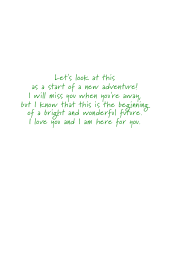 Let's look at this
as a start of a new adventure!
I will miss you when you're away,
but I know that this is the beginning
of a bright and wonderful future.
I love you and I am here for you.